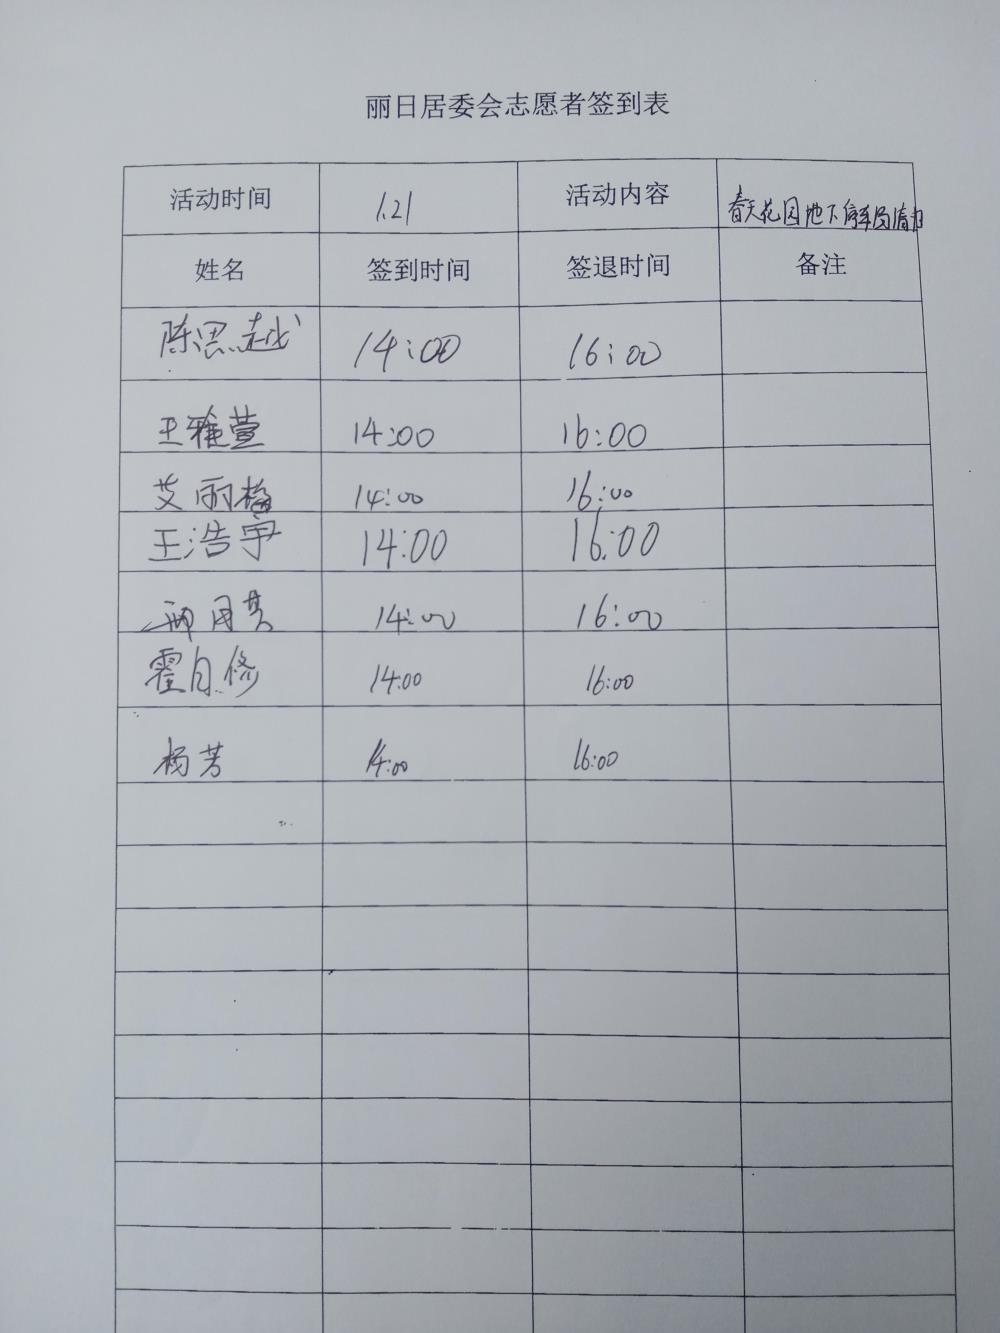 丽日居委会志愿者签到表
活动时间 1.21 活动内容 春天花园地下停车场清扫
姓名 签到时间 签退时间 备注
陈思越 14:00 16:00
王雅萱 14:00 16:00
艾丽梅 14:00 16:00
王浩宇 14:00 16:00
14:00 16:00
霍自修 14:00 16:00
杨芳 14:00 16:00